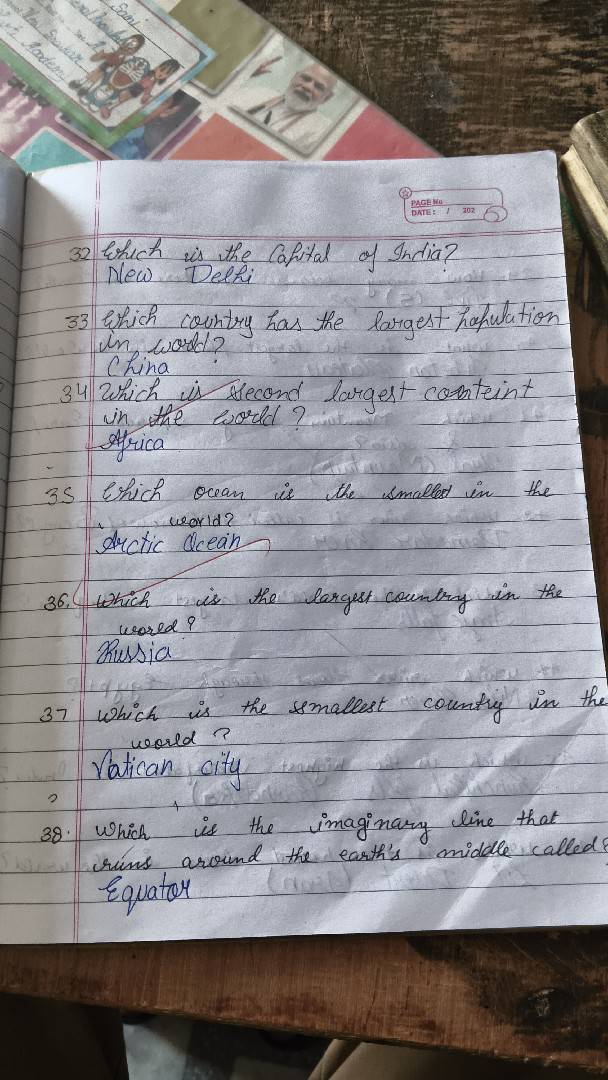 PAGE No
DATE: / 202
32 Which is the Capital of India?
New Delhi
33 Which country has the largest population
in world?
China
34 Which is second largest conteint
in the world?
Africa
35 Which ocean is the smallest in the
world?
Arctic Ocean
36. Which is the largest country in the
world?
Russia
37 Which is the smallest country in the
world?
Vatican city
38. Which is the imaginary line that
runs around the earth's middle called?
Equator